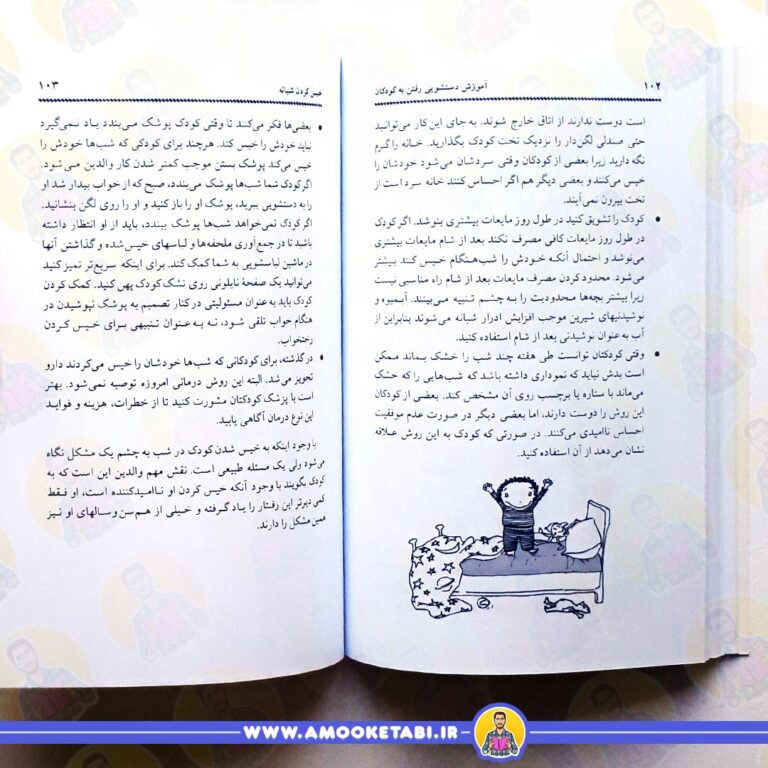 ۱۰۲
آموزش دستشویی رفتن به کودکان
است دوست ندارند از اتاق خارج شوند. به جای این کار می‌توانید
حتی صندلی لگن‌دار را نزدیک تخت کودک بگذارید. خانه را گرم
نگه دارید زیرا بعضی از کودکان وقتی سردشان می‌شود خودشان را
خیس می‌کنند و بعضی دیگر هم اگر احساس کنند خانه سرد است از
تخت بیرون نمی‌آیند.
• کودک را تشویق کنید در طول روز مایعات بیشتری بنوشد. اگر کودک
در طول روز مایعات کافی مصرف نکند بعد از شام مایعات بیشتری
می‌نوشد و احتمال آنکه خودش را شب‌هنگام خیس کند بیشتر
می‌شود. محدود کردن مصرف مایعات بعد از شام راه مناسبی نیست
زیرا بیشتر بچه‌ها محدودیت را به چشم تنبیه می‌بینند. آبمیوه و
نوشیدنیهای شیرین موجب افزایش ادرار شبانه می‌شوند بنابراین از
آب به‌عنوان نوشیدنی بعد از شام استفاده کنید.
• وقتی کودکتان توانست طی هفته چند شب را خشک بماند ممکن
است بدش نیاید که نموداری داشته باشد که شب‌هایی را که خشک
می‌ماند با ستاره یا برچسب روی آن مشخص کند. بعضی از کودکان
این روش را دوست دارند، اما بعضی دیگر در صورت عدم موفقیت
احساس ناامیدی می‌کنند. در صورتی که کودک به این روش علاقه
نشان می‌دهد از آن استفاده کنید.
خیس کردن شبانه
۱۰۳
• بعضی‌ها فکر می‌کنند تا وقتی کودک پوشک می‌بندد یاد نمی‌گیرد
نباید خودش را خیس کند. هرچند برای کودکی که شب‌ها خودش را
خیس می‌کند پوشک بستن موجب کمتر شدن کار والدین می‌شود.
اگر کودک شما شب‌ها پوشک می‌بندد، صبح که از خواب بیدار شد او
را به دستشویی ببرید، پوشک او را باز کنید و او را روی لگن بنشانید.
اگر کودک نمی‌خواهد شب‌ها پوشک ببندد، باید از او انتظار داشته
باشید تا در جمع‌آوری ملحفه‌ها و لباسهای خیس شده و گذاشتن آنها
در ماشین لباسشویی به شما کمک کند. برای اینکه سریع‌تر تمیز کنید
می‌توانید یک صفحهٔ نایلونی روی تشک کودک پهن کنید. کمک کردن
کودک باید به عنوان مسئولیتی در کنار تصمیم به پوشک نپوشیدن در
هنگام خواب تلقی شود، نه به عنوان تنبیهی برای خیس کردن
رختخواب.
• در گذشته، برای کودکانی که شب‌ها خودشان را خیس می‌کردند دارو
تجویز می‌شد. البته این روش درمانی امروزه توصیه نمی‌شود. بهتر
است با پزشک کودکتان مشورت کنید تا از خطرات، هزینه و فواید
این نوع درمان آگاهی یابید.
با وجود اینکه به خیس شدن کودک در شب به چشم یک مشکل نگاه
می‌شود ولی یک مسئله طبیعی است. نقش مهم والدین این است که به
کودک بگویند با وجود آنکه خیس کردن او ناامیدکننده است، او فقط
کمی دیرتر این رفتار را یاد گرفته و خیلی از هم‌سن و سالهای او نیز
همین مشکل را دارند.
WWW.AMOOKETABI.IR